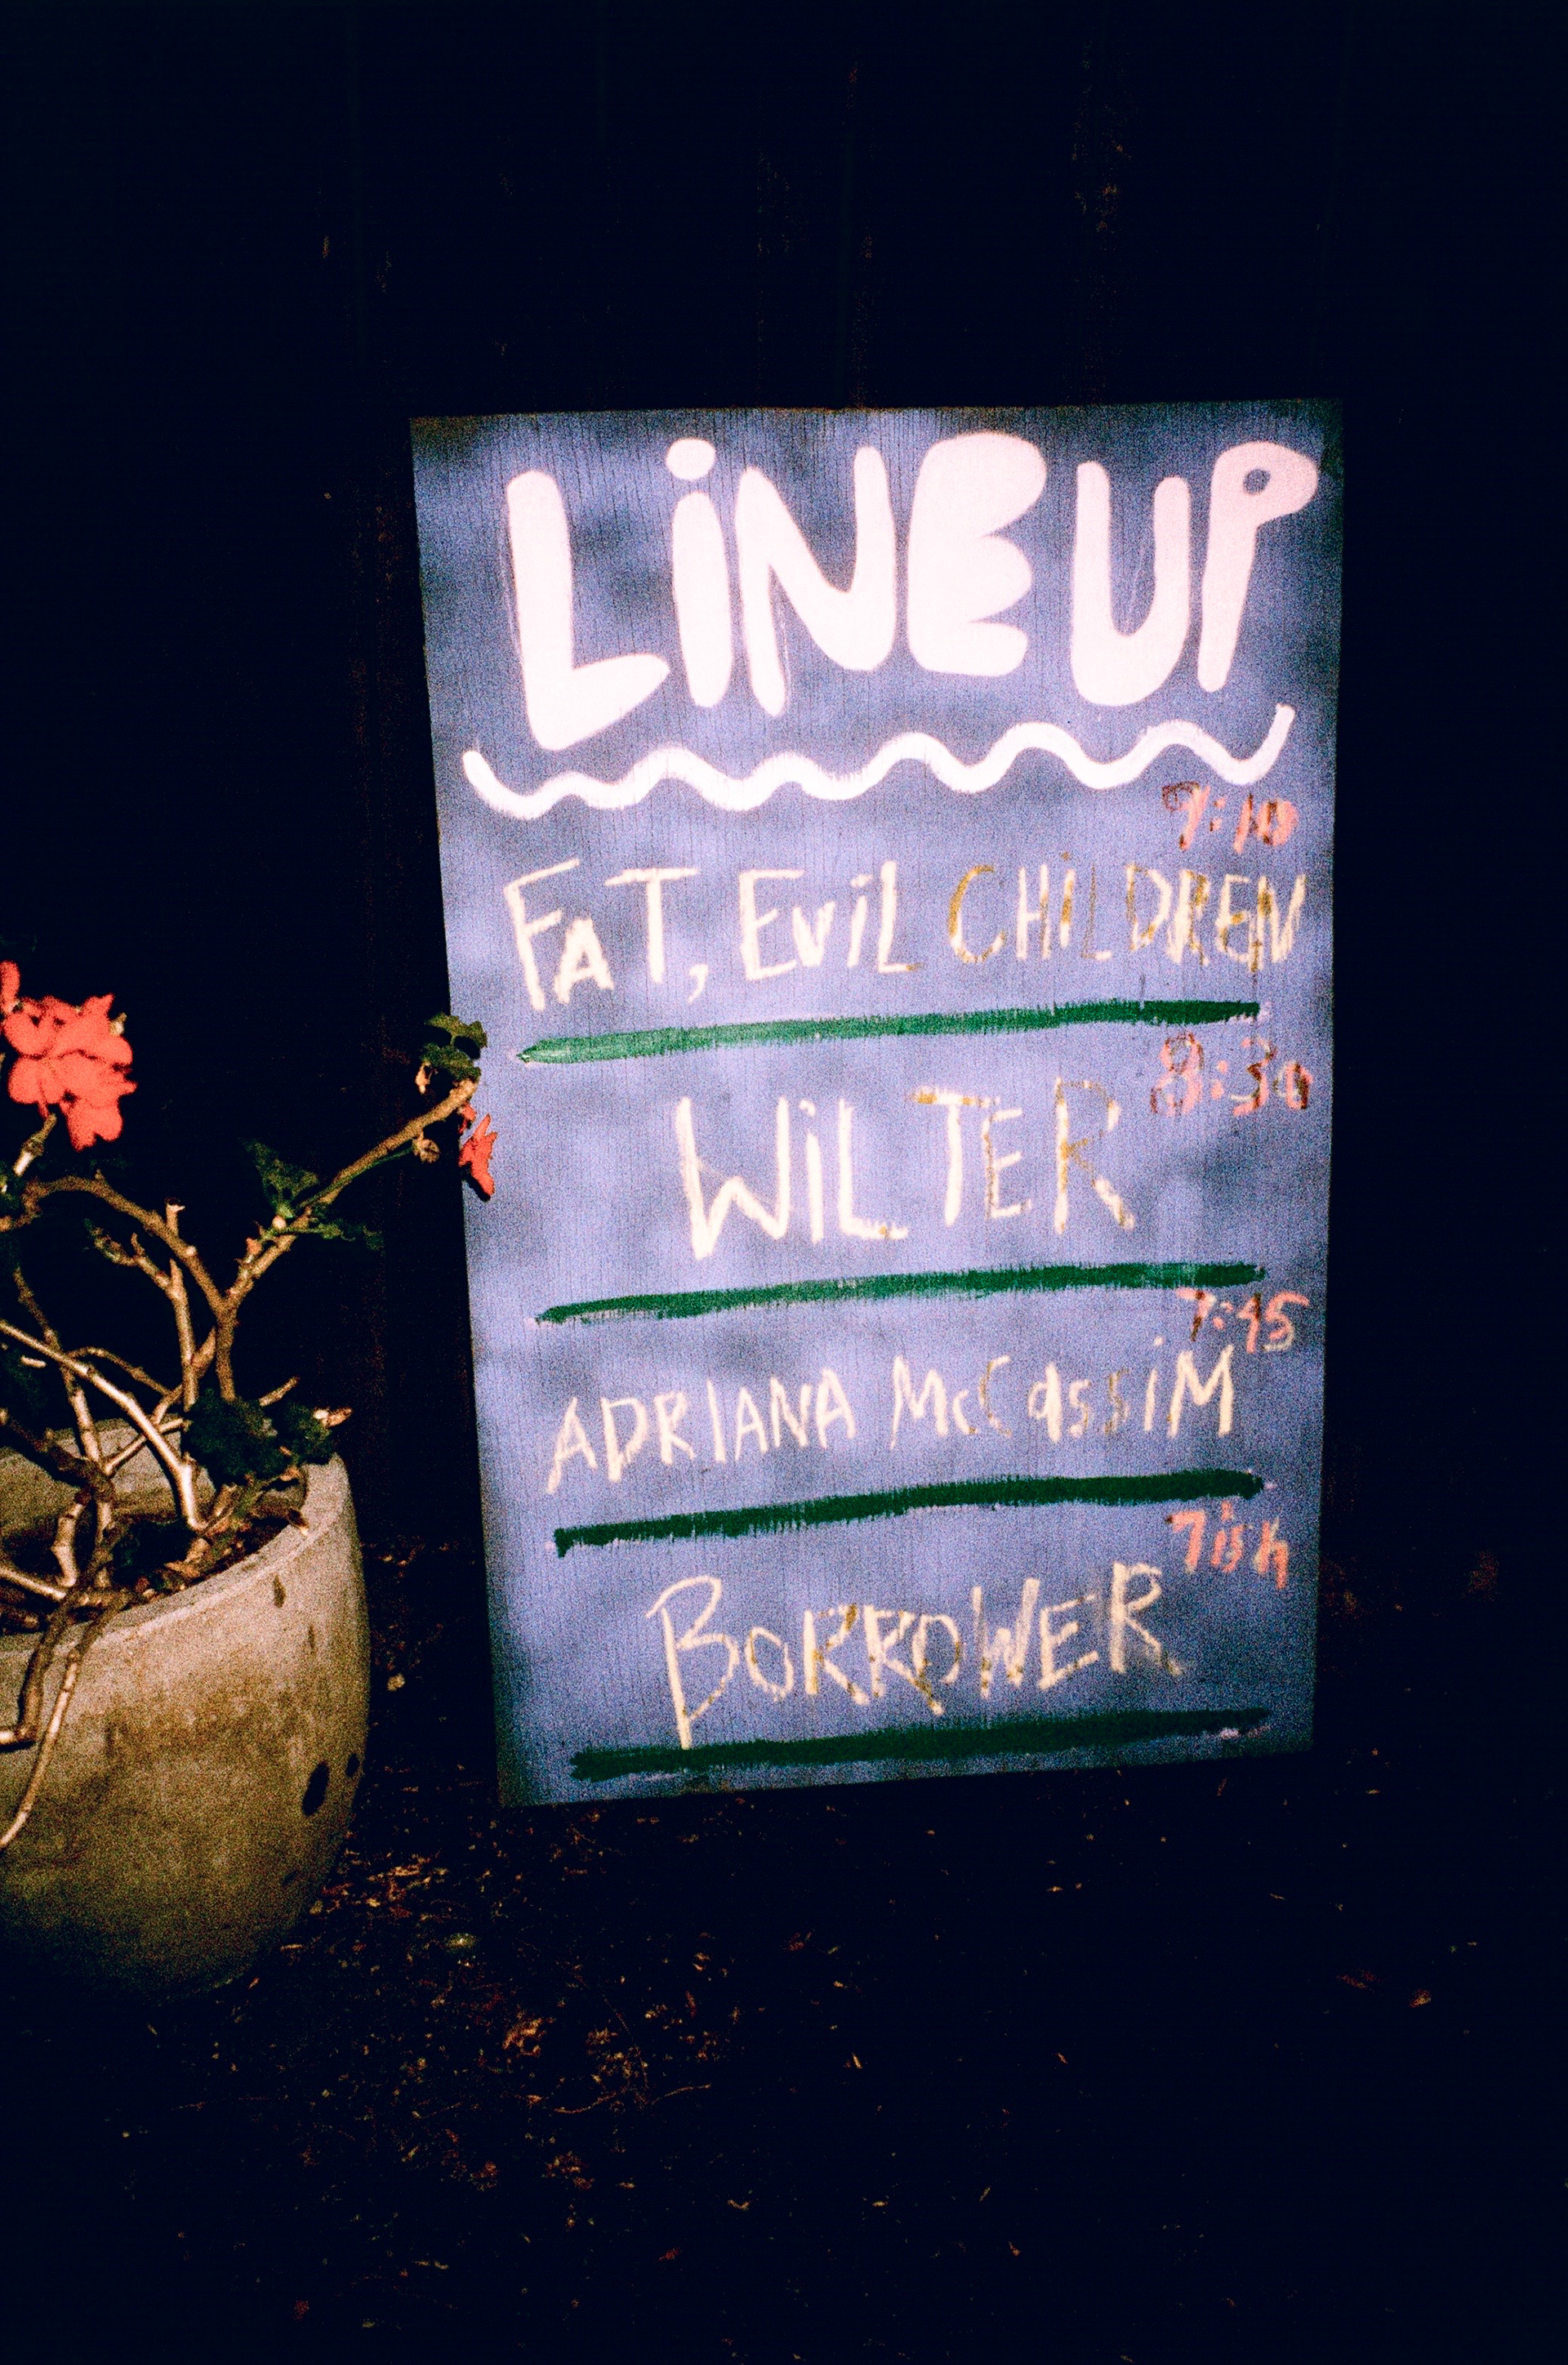 LiNE UP
9:10
FAT, EViL CHiLDREN
8:30
WiLTER
7:45
ADRIANA McCassiM
7ish
BORROWER